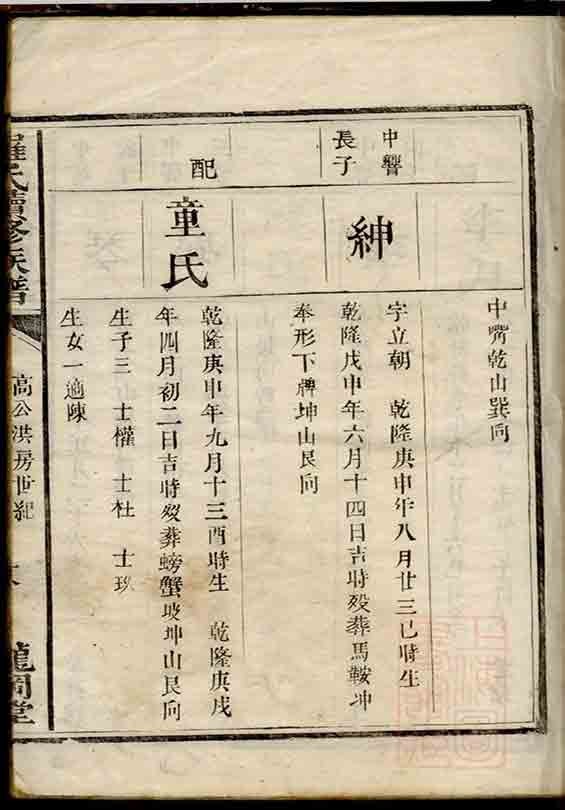 中嘴乾山巽向
中響
長子
紳
字立朝 乾隆庚申年八月廿三巳時生
乾隆戊申年六月十四日吉時殁葬馬鞍坤
奉形下牌坤山艮向
配
童氏
乾隆庚申年九月十三酉時生 乾隆庚戌
年四月初二日吉時殁葬螃蟹坡坤山艮向
生子三 士懽 士杜 士玖
生女一適陳
羅氏續修族譜
高公洪房世紀